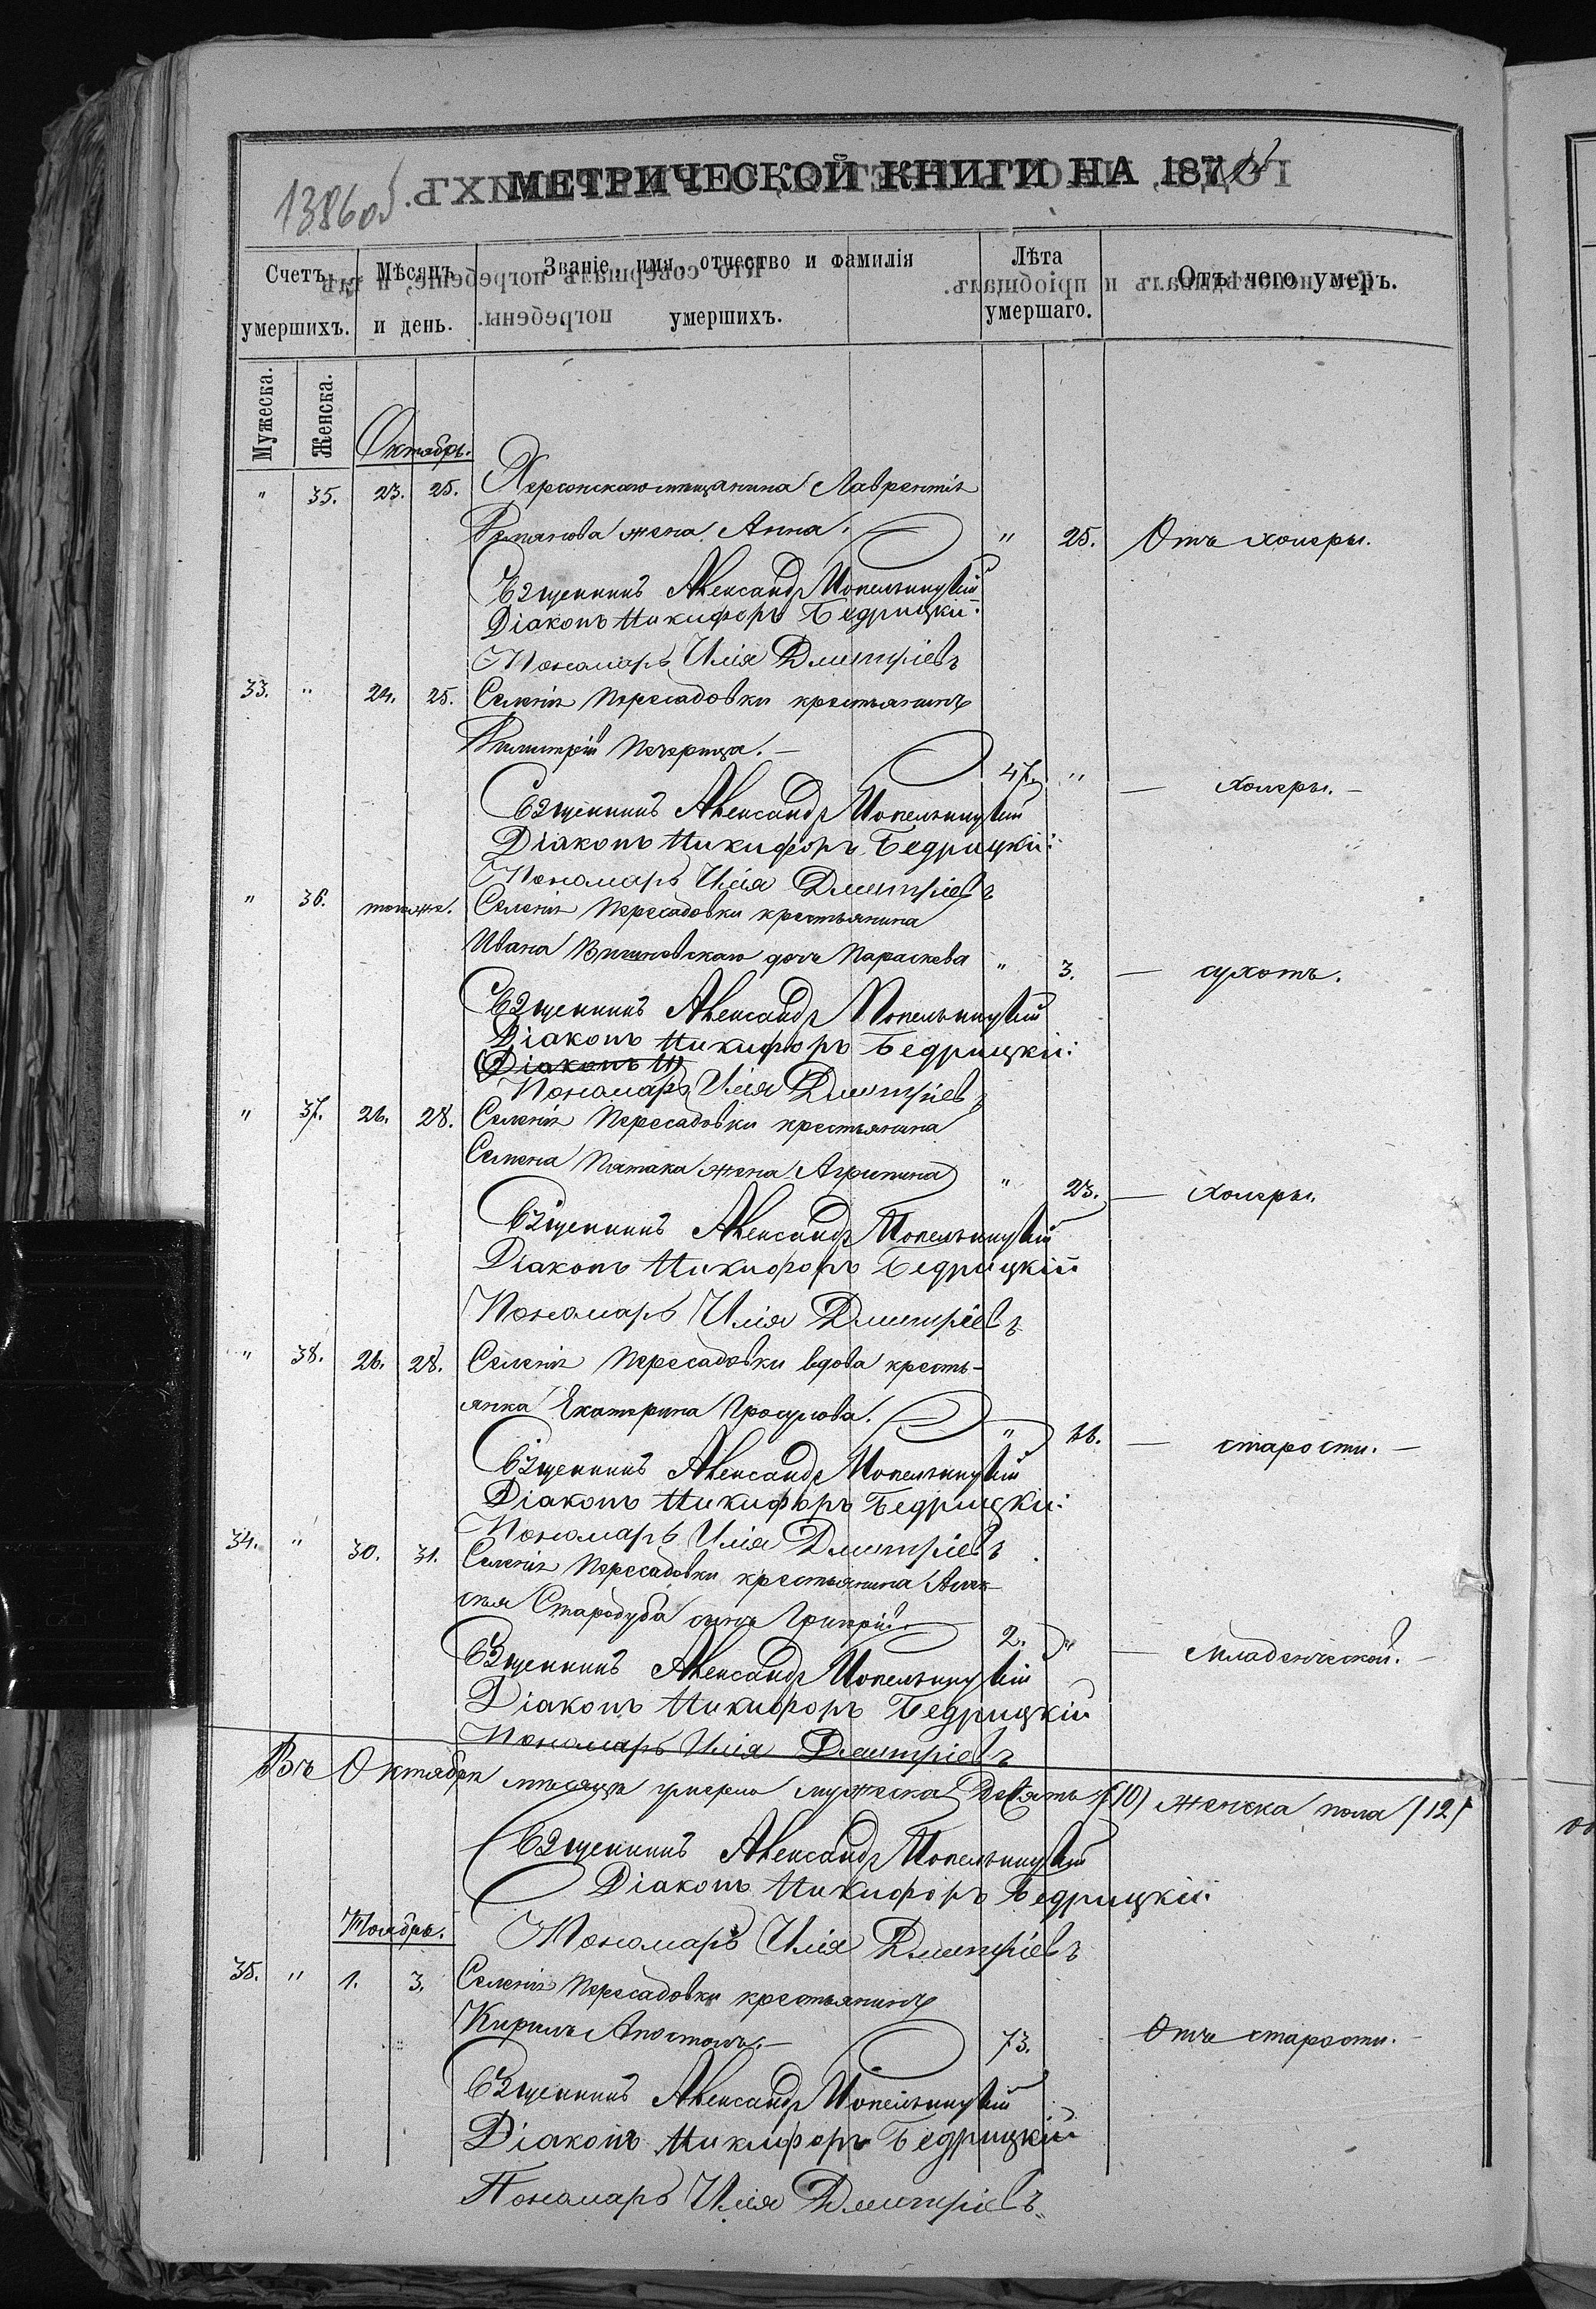 1386об.
МЕТРИЧЕСКОЙ КНИГИ НА 187
Счетъ умершихъ.
Мѣсяцъ и день.
Званіе, имя, отчество и фамилія умершихъ.
Лѣта умершаго.
Отъ чего умеръ.
Мужеска.
Женска.
Октябрь.
" 35. 23. 25. Херсонскаго мѣщанина Лаврентія
жена Анна. " 25. Отъ холеры.
Александр Попельницкій
Діаконъ Никифоръ Бедрицкій
Пономарь Илія Дмитріевъ
33. " 24. 25. Селенія Пересадовки крестьянинъ
Димитрій Печерица. 47. " — холеры. —
Александр Попельницкій
Діаконъ Никифоръ Бедрицкій
Пономарь Илія Дмитріевъ
" 36. тогоже. Селенія Пересадовки крестьянина
Ивана Вишновскаго дочь Параскева " 3. — сухотъ.
Александр Попельницкій
Діаконъ Никифоръ Бедрицкій
Діаконъ Н
Пономарь Илія Дмитріевъ
" 37. 26. 28. Селенія Пересадовки крестьянина
Семена Пятака жена Агрипина " 23. — холеры.
Александр Попельницкій
Діаконъ Никифоръ Бедрицкій
Пономарь Илія Дмитріевъ
" 38. 26. 28. Селенія Пересадовки вдова кресть-
янка Екатерина " 66. — старости. —
Александр Попельницкій
Діаконъ Никифоръ Бедрицкій
Пономарь Илія Дмитріевъ
34. " 30. 31. Селенія Пересадовки крестьянина Алек-
сѣя Стародуба сынъ Григорій. 2. " — младенческой. —
Александр Попельницкій
Діаконъ Никифоръ Бедрицкій
Пономарь Илія Дмитріевъ
Въ Октябрѣ мѣсяцѣ умерло мужеска десять /10/ женска пола /12/
Александр Попельницкій
Діаконъ Никифоръ Бедрицкій
Ноябрь.
Пономарь Илія Дмитріевъ
35. " 1. 3. Селенія Пересадовки крестьянинъ
Кирилъ Апостолъ. — 73. Отъ старости. —
Александр Попельницкій
Діаконъ Никифоръ Бедрицкій
Пономарь Илія Дмитріевъ